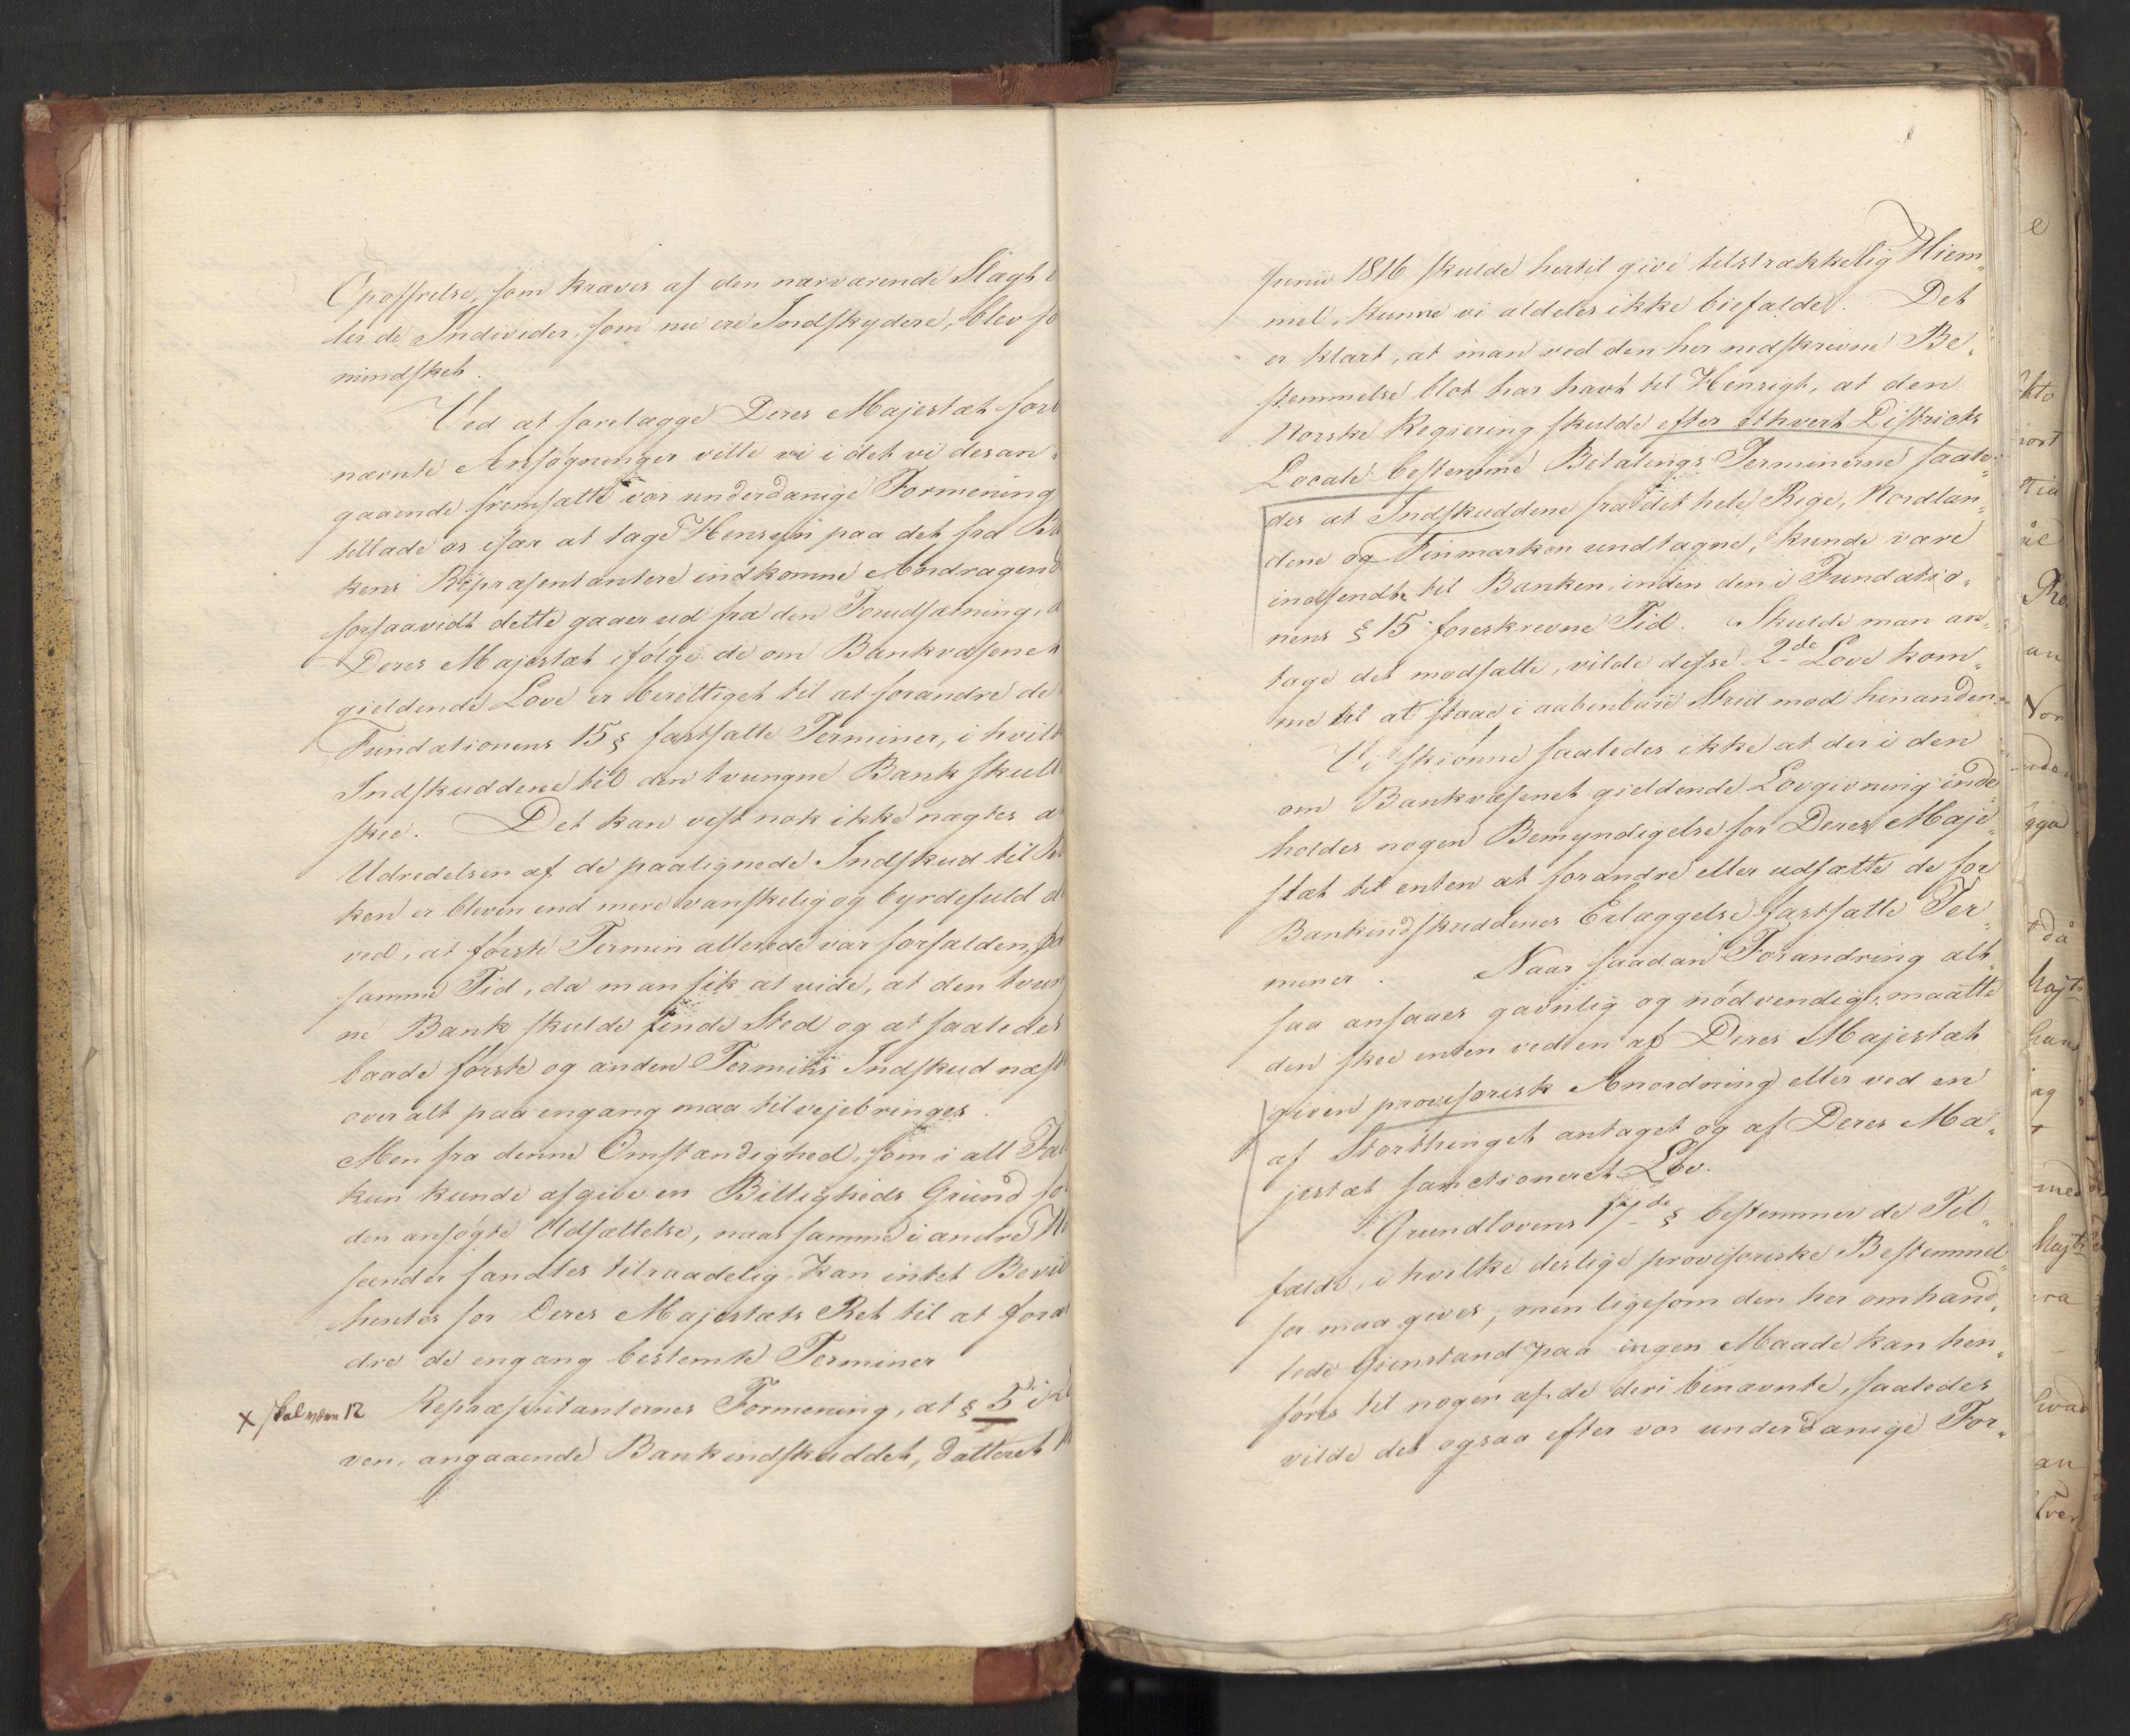 Opoffrelse, som kræves af den nærværende Slægt e
ler de Individer, som nu ere Indskydere, blev fo
mindsket.
Ved at forelægge Deres Majestæt for
nævnte Ansøgninger ville vi i det vi desan¬
gaaende fremsatte vor underdanige Formening
tillade os især at tage Hensyn paa det fra Ba
kens Repræsentantere indkomne Andragend
forsaavidt dette gaaer ud fra den Forudsætning, a
Deres Majestæt ifølge de om Bankvæsenet
gieldende Love er berettiget til at forandre de
Fundationens 15 § fastsatte Terminer, i hvilk
Indskuddene til den tvungne Bank skull
skee. Det kan vist nok ikke nægtes a
Udredelsen af de paalignede Indskud til
ken er bleven end mere vanskelig og byrdefuld d
ved, at første Termin allerede var forfalden, på
samme Tid, da man fik at vide, at den tvun
ne Bank skulde finde Sted og at saaledes
baade første og anden Termins Indskud næst
over alt paa engang maa tilvejebringes.
Men fra denne Omstændighed, som i alt Fal
kun kunde afgive en Billigheds Grund fo
den ansøgte Udsættelse, naar samme i andre H
seender fandtes tilraadelig, kan intet Bevi
hentes for Deres Majestæts Ret til at foran
dre de engang bestemte Terminer
x skal være 12
Repræsentanternes Formening, at § 5 i
ven, angaaende Bankindskuddet, datteret
Junii 1816 skulde hertil give tilstrækkelig Hiem¬
mel, kunne vi aldeles ikke biefalde. Det
er klart, at man ved den her nedskrevne Be¬
stemmelse blot har havt til Hensigt, at den
Norske Regiering skulde efter ethvert Districts
Locale bestemme Betalings Terminerne saale¬
des at Indskuddene fra det hele Rige, Nordlan¬
dene og Finmarken undtagne, kunde være
indsendte til Banken, inden den i Fundatio¬
nens § 15 foreskrevne Tid. Skulde man an¬
tage det modsatte, vilde disse 2de Love kom¬
me til at staae i aabenbare Strid mod hinanden.
Vi skiønne saaledes ikke at der i den
om Bankvæsenet gieldende Lovgivning inde
holdes nogen Bemyndigelse for Deres Maje¬
stæt til enten at forandre eller udsætte de for
Bankindskuddenes Erlæggelse fastsatte Ter¬
miner. Naar saadan Forandring alt¬
saa ansaaes gavnlig og nødvendig, maatte
den skee enten ved en af Deres Majestæt
given provisorisk Anordning eller ved en
af Storthinget antaget og af Deres Ma¬
jestæt sanctioneret Lov.
Grundlovens 17de § bestemmer de Til¬
fælde, i hvilke deslige provisoriske Bestemmel
ser maa gives, men ligesom den her omhand¬
lede Gienstand paa ingen Maade kan hen¬
føres til nogen af de deri benævnte, saaledes
vilde det ogsaa efter vor underdanige For¬